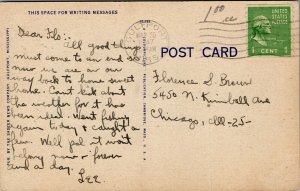 THIS SPACE FOR WRITING MESSAGES
Dear Flo:-
All good things
must come to an end so
now we are on our
way back to home sweet
home. Can't kick about
the weather for it has
been ideal. Went fishing
again today & caught a
few. Well pal it won't
belong now & forever
and a day.
Lee.
POST CARD
1 CENT 1
Florence S. Brown
5450 N. Kimball Ave
Chicago, Ill-25-